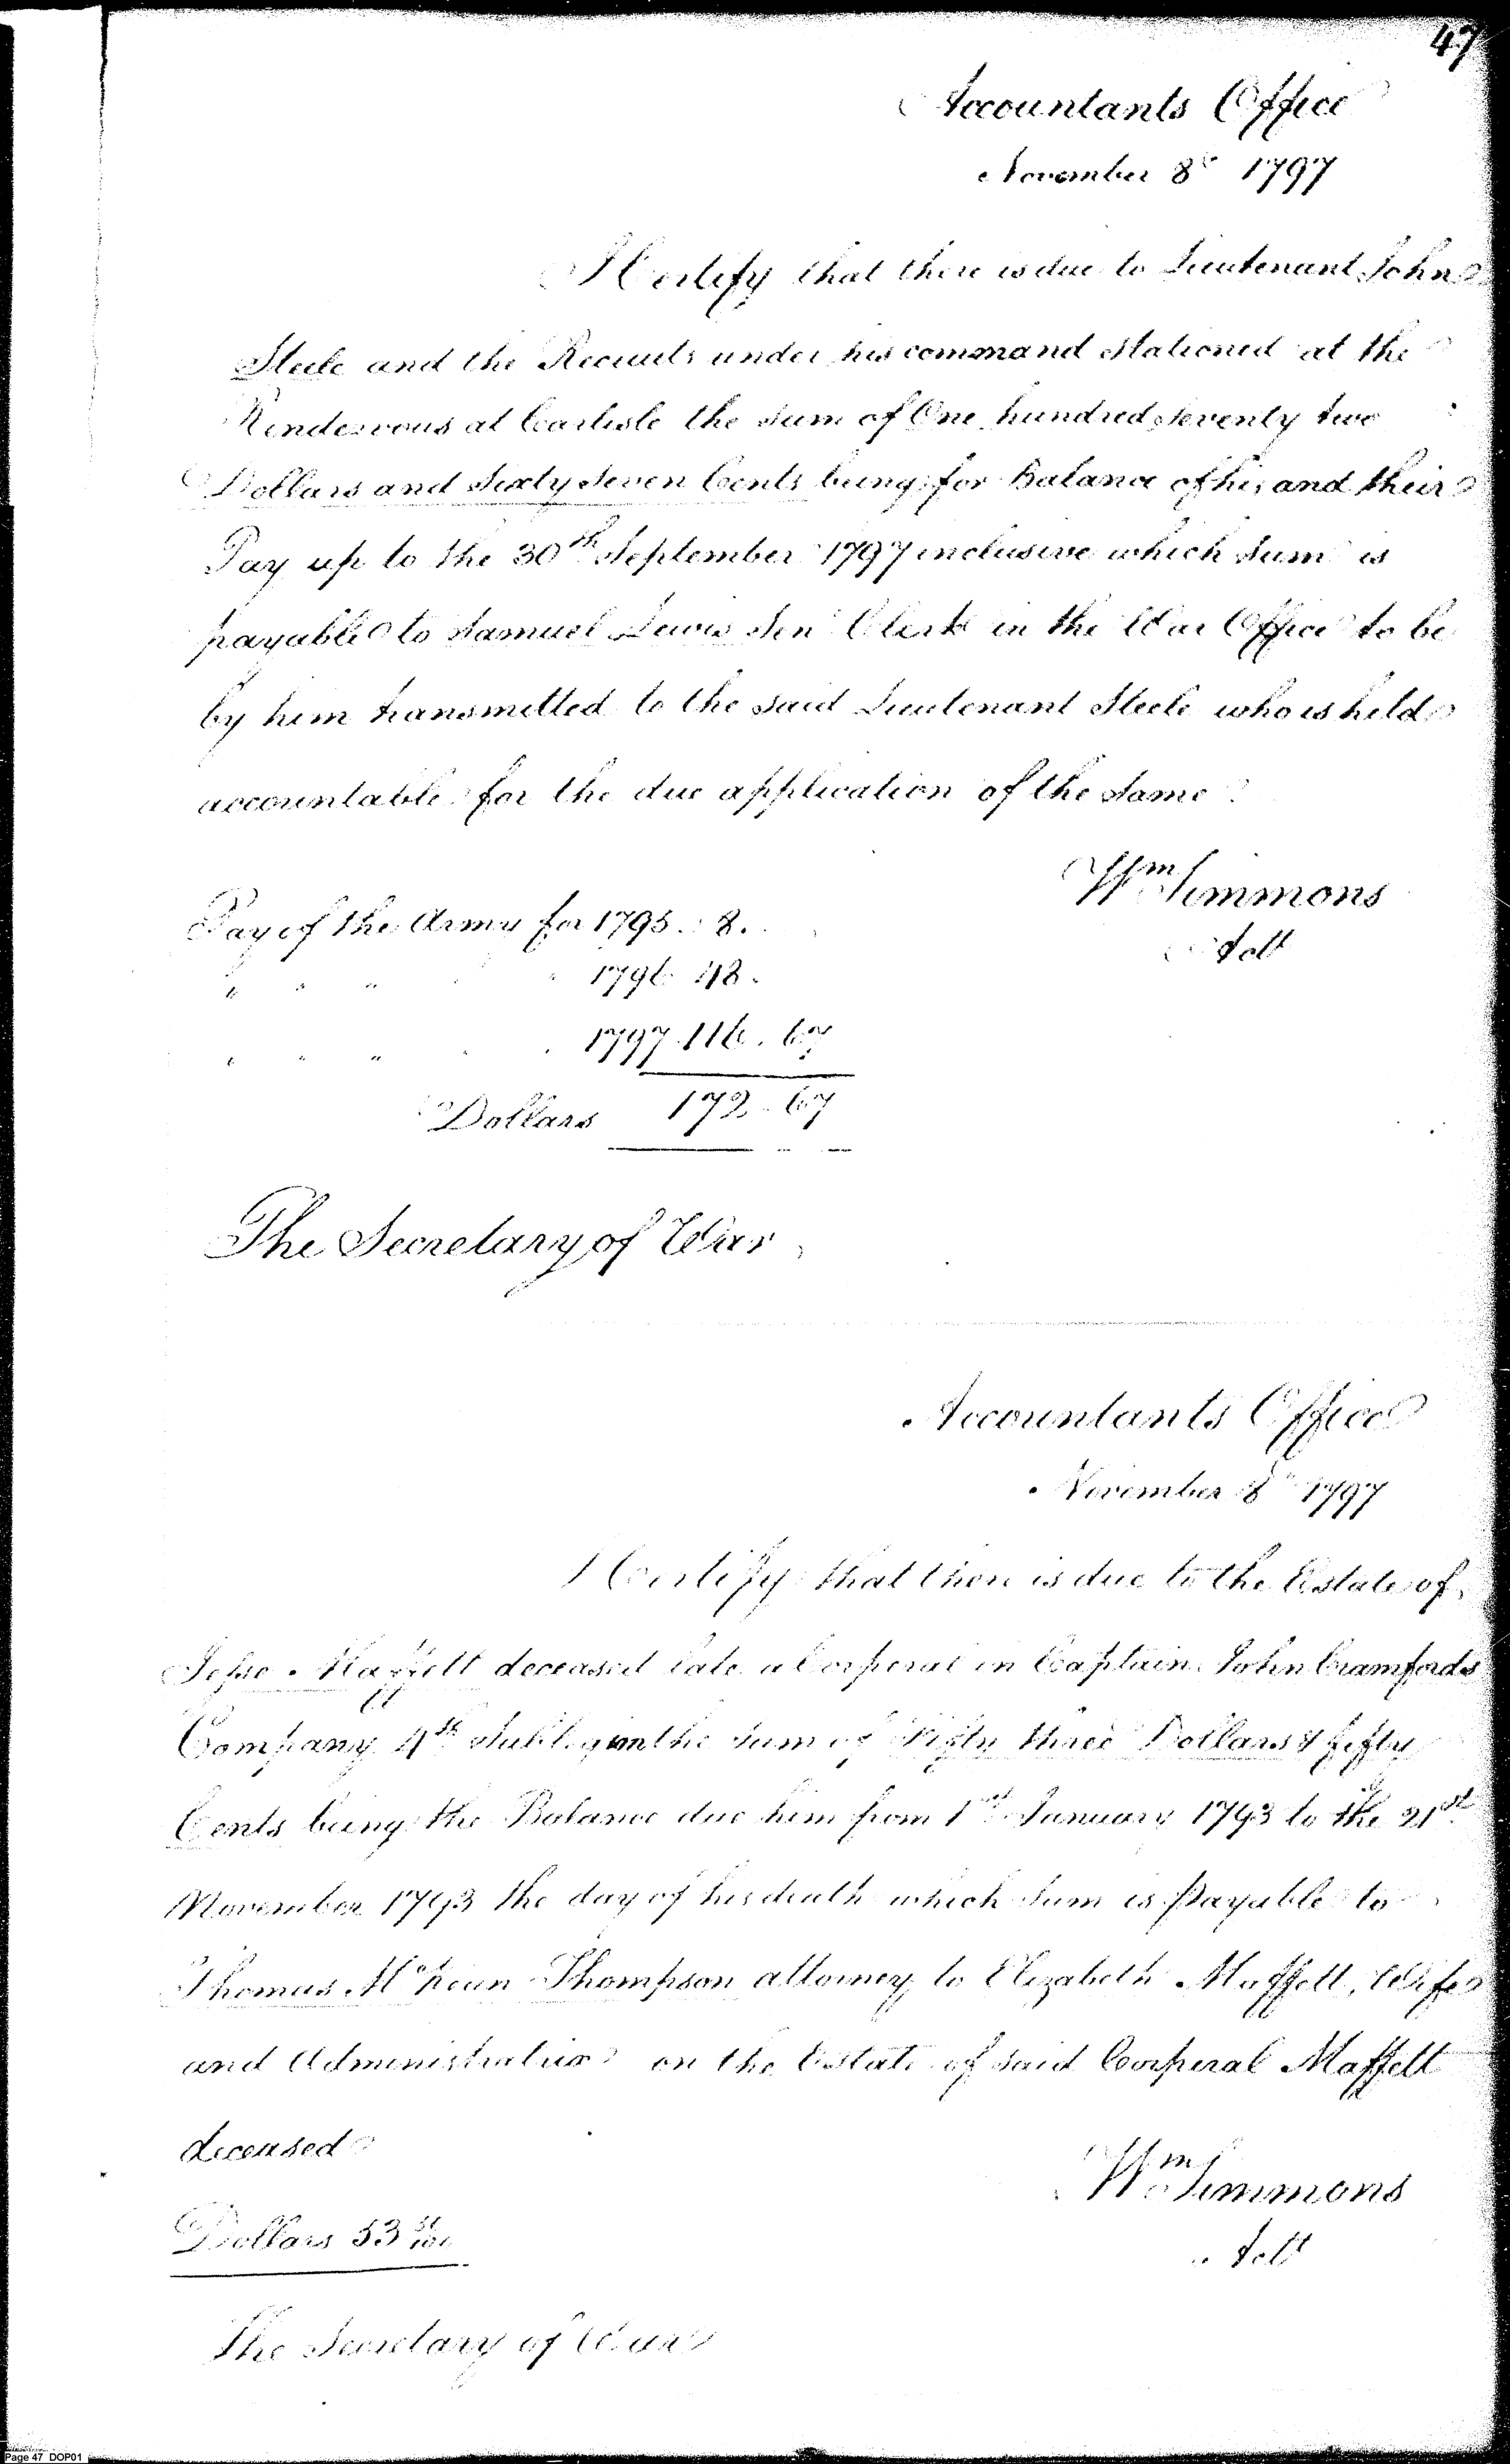 47
Accountants Office
November 8th 1797
I Certify that there is due to Lieutenant John
Steele and the Recruits under his command stationed at the
Rendezvous at Carlisle the sum of One hundred seventy two
Dollars and sixty seven Cents being for Balance of his and their
Pay up to the 30th September 1797 inclusive which sum is
payable to Samuel Lewis Senr Clerk in the War Office to be
by him transmitted to the said Lieutenant Steele who is held
accountable for the due application of the same
Wm Simmons
Actt
Pay of the Army for 1795 . 8 .
" " " 1796 48 .
" " " 1797 . 116 . 67
Dollars 172 . 67
The Secretary of War
Accountants Office
November 8th 1797
I Certify that there is due to the Estate of
Jesse Maffett deceased late a Corporal in Captain John Cramfords
Company 4th subLegion the sum of Fifty three Dollars & fifty
Cents being the Balance due him from 1st January 1793 to the 21st
November 1793 the day of his death which sum is payable to
Thomas McKean Thompson attorney to Elizabeth Maffett, Wife
and Administratrix on the Estate of said Corporal Maffett
deceased
Wm Simmons
Actt
Dollars 53
The Secretary of War
Page 47 DOP01